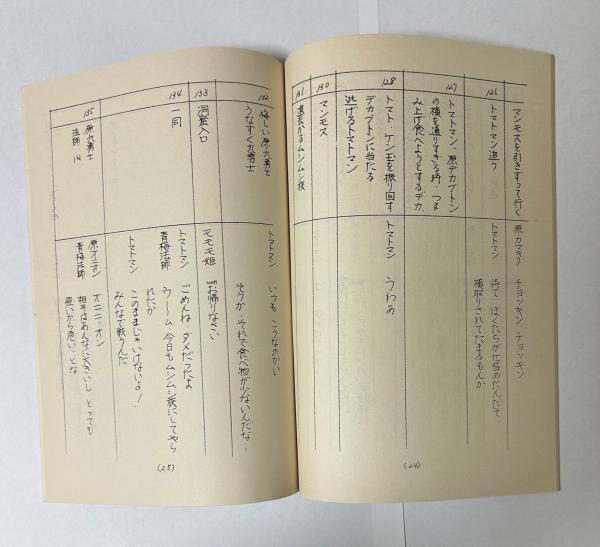 マンモスを引きずって行く
原カマキリ
チョッキン チョッキン
126
トマトマン追う
トマトマン
待て、ぼくたちが仕留めたんだで
横取りされてたまるもんか
127
トマトマン・原デカブトン
の横を通りすぎる時・つま
み上げ食べようとするデカ、
128
トマト・ケン玉を振り回す
デカブトンに当たる
逃げるトマトマン
トマトマン
うわぁ
130
マンモス
131
遠去かるムシムシ族
(24)
132
悔しい原九勇士
うなずく九勇士
トマトマン
いつも こうなのかい
そうか、それで食べ物が少ないんだな・
133
洞窟入口
モモモ姫
お帰りなさい
134
一同
トマトマン
ごめんね・ダメだったよ
青梅法師
ウーーム 今日もムシムシ族にしてやら
れたか
トマトマン
このままじゃいけないよ!
みんなで戦うんだ
135
原九勇士
法師 IN
原オニオン
オニニ・オン
青梅法師
相手はあんなに大きいし とっても
悪いから危い・とな
(25)